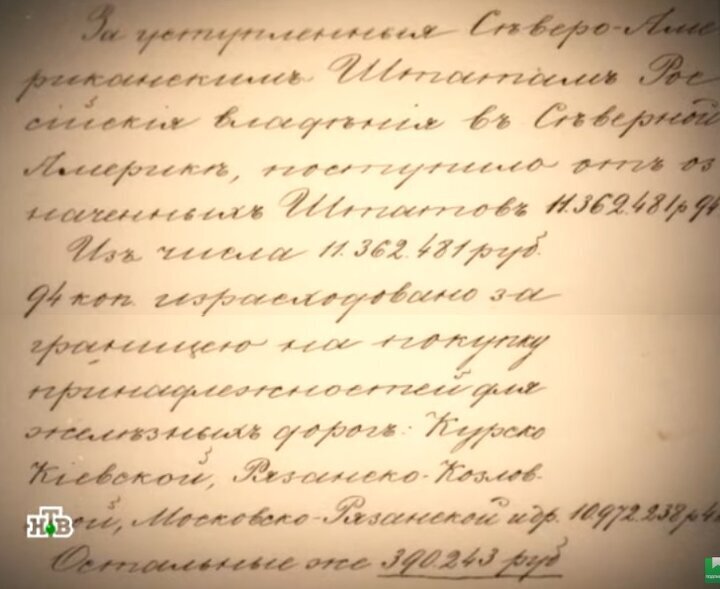 За уступленныя Сѣверо-Аме
риканскимъ Штатамъ Рос
сійскія владѣнія въ Сѣверной
Америкѣ, поступило отъ оз
наченныхъ Штатовъ 11.362.481 р 94
Изъ числа 11.362.481 руб.
94 коп. израсходовано за
границею на покупку
принадлежностей для
желѣзныхъ дорогъ: Курско
Кіевской, Рязанско-Козлов-
ской, Московско-Рязанской и др. 10.972.238 р 4
Остальные же 390.243 руб
НТВ